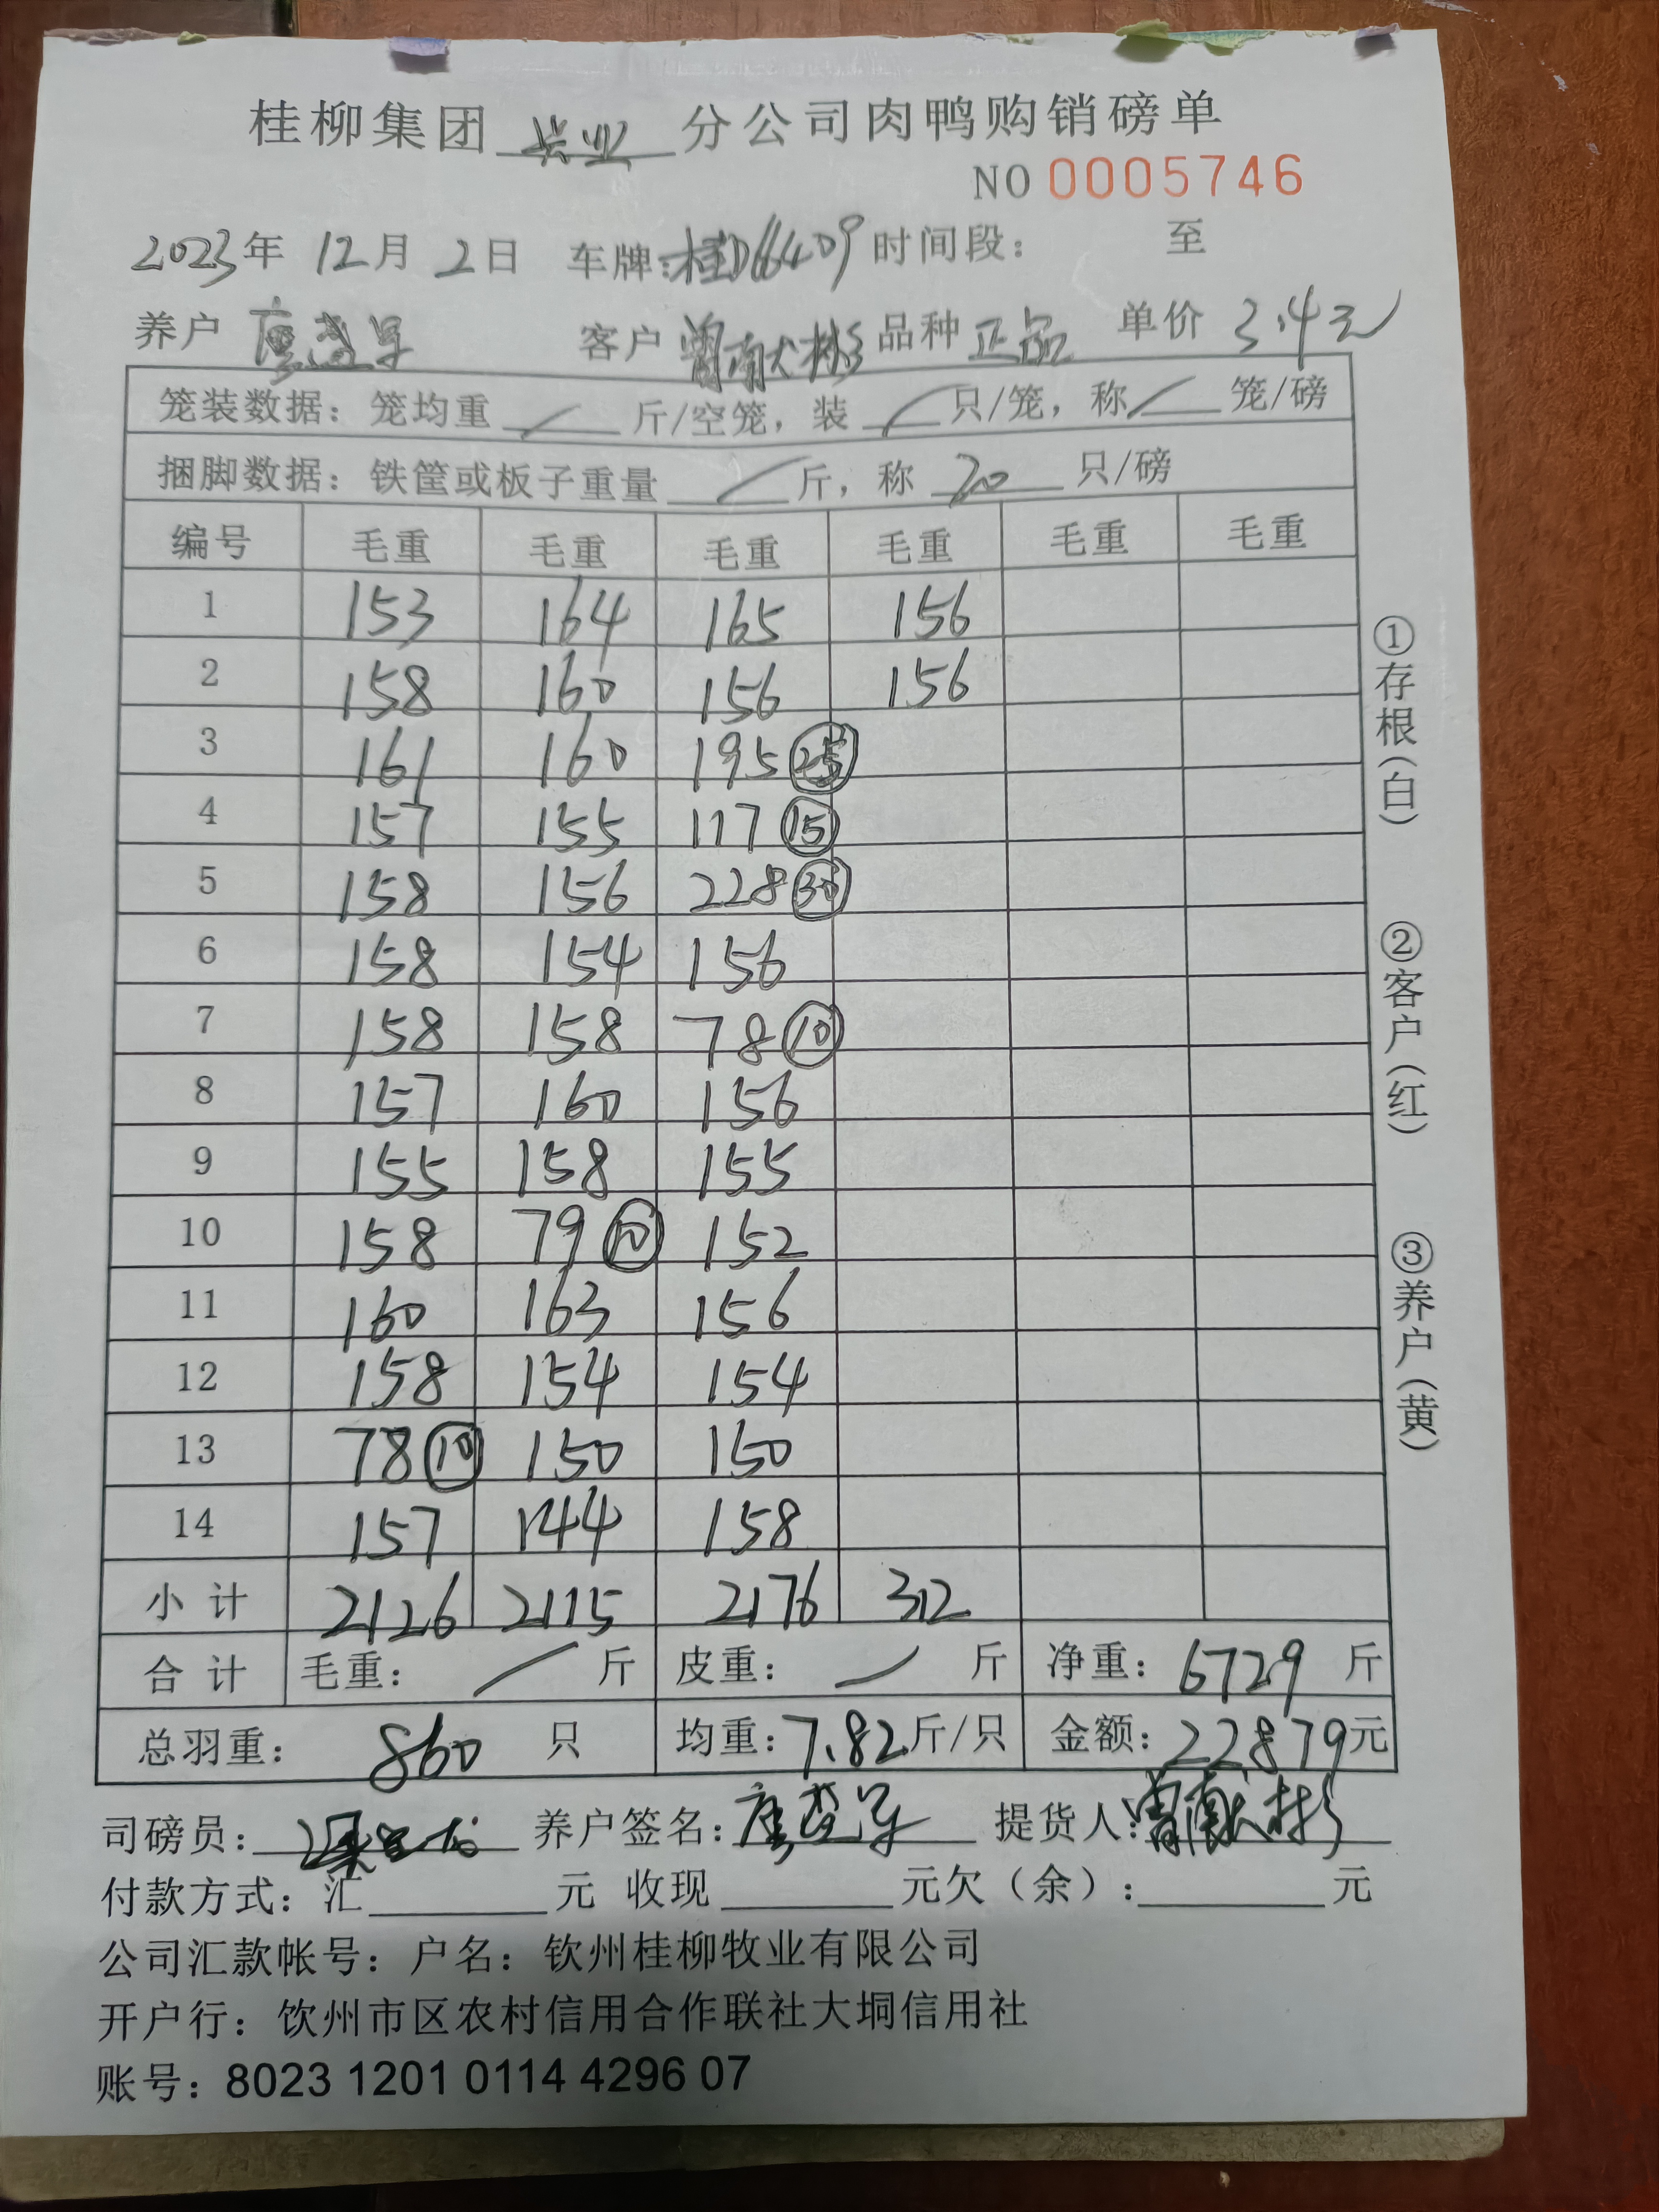 桂柳集团 兴业 分公司肉鸭购销磅单
NO 0005746
2023年 12月 2日 车牌:桂D66409 时间段: 至
养户 客户 曾南犬彬 品种 正品 单价 3.4元
笼装数据: 笼均重 / 斤/空笼, 装 / 只/笼, 称 / 笼/磅
捆脚数据: 铁筐或板子重量 / 斤, 称 20 只/磅
编号 毛重 毛重 毛重 毛重 毛重 毛重
1 153 164 165 156
2 158 160 156 156
3 161 160 195 25
4 157 155 117 15
5 158 156 228 30
6 158 154 156
7 158 158 78 10
8 157 160 156
9 155 158 155
10 158 79 10 152
11 160 163 156
12 158 154 154
13 78 10 150 150
14 157 144 158
小计 2126 2115 2176 312
合计 毛重: / 斤 皮重: / 斤 净重: 6729 斤
总羽重: 860 只 均重: 7.82 斤/只 金额: 22879元
司磅员: 养户签名: 提货人:
付款方式: 汇 元 收现 元欠(余): 元
公司汇款帐号: 户名: 钦州桂柳牧业有限公司
开户行: 钦州市区农村信用合作联社大垌信用社
账号: 8023 1201 0114 4296 07
①存根(白)
②客户(红)
③养户(黄)